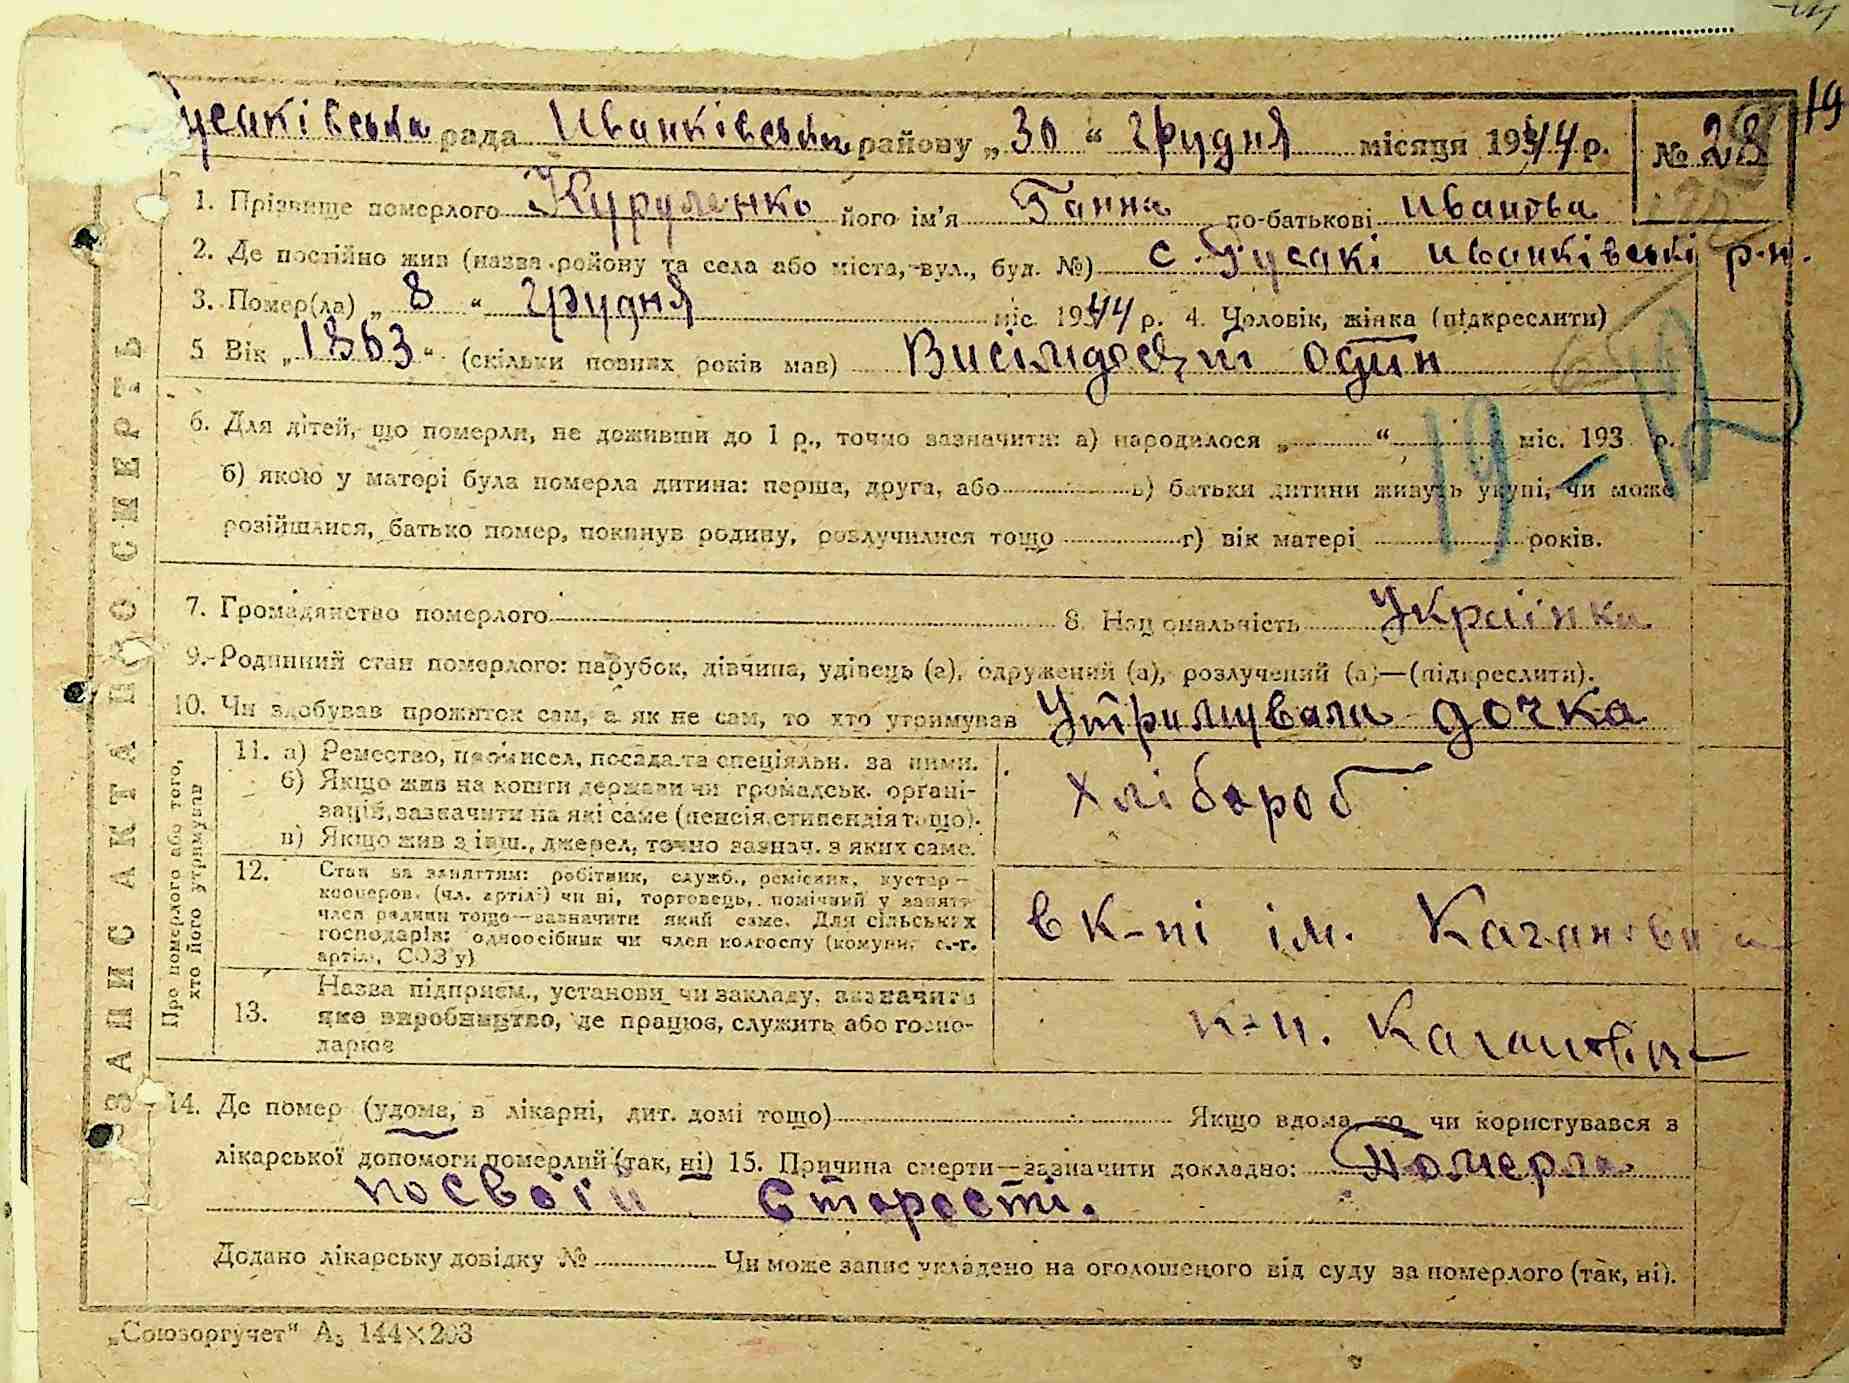 19
усаківська рада Иванківська району „30“ грудня місяця 1944 р. № 28
1. Прізвище померлого Куруленко його ім'я Ганна по-батькові Иванова
2. Де постійно жив (назва району та села або міста, вул., буд. №) с. Гусакі иванківські р-н.
3. Помер(ла) „8“ грудня міс. 1944 р. 4. Чоловік, жінка (підкреслити)
5 Вік „1863“ (скільки повних років мав) Висімдесят один
6. Для дітей, що померли, не доживши до 1 р., точно зазначити: а) народилося „ “ міс. 193 р.
б) якою у матері була померла дитина: перша, друга, або в) батьки дитини живуть укупі, чи може
розійшлися, батько помер, покинув родину, розлучилися тощо г) вік матері років.
19-12
7. Громадянство померлого 8. Національність Українка
9. Родинний стан померлого: парубок, дівчина, удівець (а), одружений (а), розлучений (а)—(підкреслити).
10. Чи здобував прожиток сам, а як не сам, то хто утримував Утримувала дочка
ЗАПИС АКТА ПРО СМЕРТЬ
Про померлого або того, хто його утримував
11. а) Ремество, промисел, посада та спеціяльн. за ними.
б) Якщо жив на кошти держави чи громадськ. органі-
зацій, зазначити на які саме (пенсія, стипендія тощо).
в) Якщо жив з інш., джерел, точно зазнач. з яких саме.
хлібороб
12. Стан за заняттям: робітник, служб., ремісник, кустар—
кооперов. (чл. артілі) чи ні, торговець, помічний у занятт
член родини тощо—зазначити який саме. Для сільських
господарів: одноосібник чи член колгоспу (комуни, с.-г.
артілі, СОЗ'у)
в К-пі ім. Кагановича
13. Назва підприєм., установи чи закладу, зазначити
яке виробництво, де працює, служить або госпо-
дарює
к-п. Кагановіча
14. Де помер (удома, в лікарні, дит. домі тощо) Якщо вдома, то чи користувався з
лікарської допомоги померлий (так, ні) 15. Причина смерти—зазначити докладно: Померла
по своїй старості.
Додано лікарську довідку № Чи може запис укладено на оголошеного від суду за померлого (так, ні).
„Союзоргучет“ А₅ 144×203